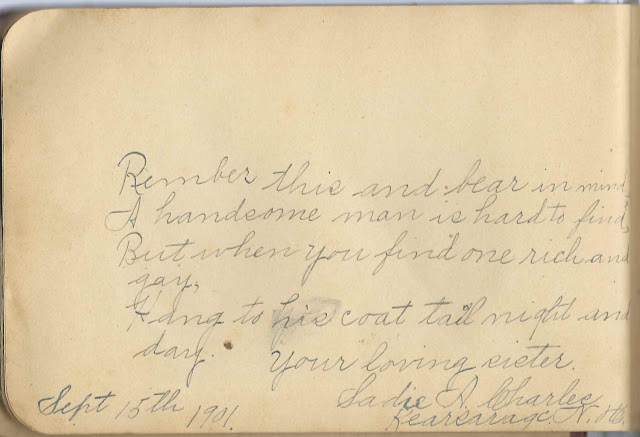 Rember this and bear in mind
A handsome man is hard to find,
But when you find one rich and
gay,
Hang to his coat tail night and
day.
Your loving sister.
Sadie A. Charles
Sept 15th 1901.
Kearsarage. N. H.